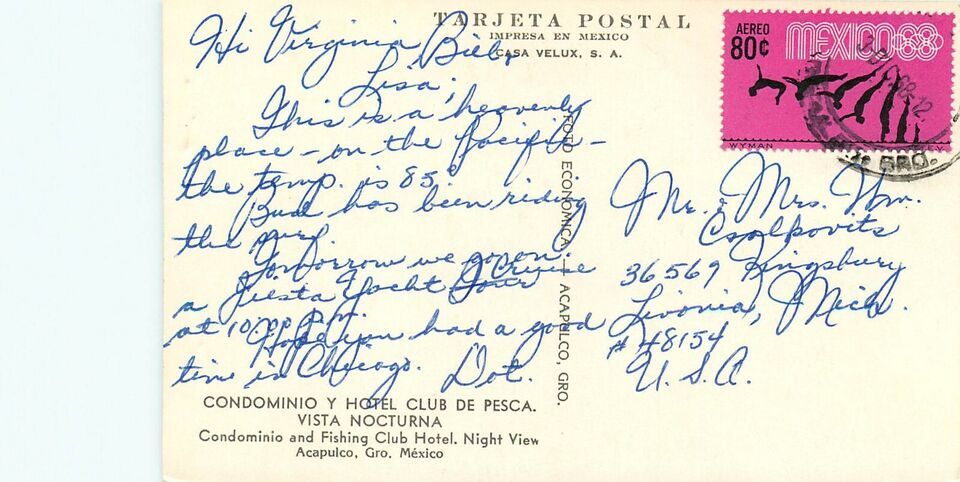 TARJETA POSTAL
IMPRESA EN MEXICO
CASA VELUX, S. A.
Hi Virginia Bill,
Lisa,
This is a heavenly
place - on the Pacific -
the temp. is 85°
Bud has been riding
the surf.
Tomorrow we go on
a Fiesta Yacht Cruise
at 10:00 P.M.
Hope you had a good
time in Chicago. Dot.
CONDOMINIO Y HOTEL CLUB DE PESCA.
VISTA NOCTURNA
Condominio and Fishing Club Hotel. Night View
Acapulco, Gro. México
FOTO ECONOMICA. — ACAPULCO, GRO.
AEREO
80¢
MEXICO68
WYMAN
GRO.
Mr. & Mrs. Wm.
Csolkovits
36569 Kingsbury
Livonia, Mich.
# 48154
U.S.A.